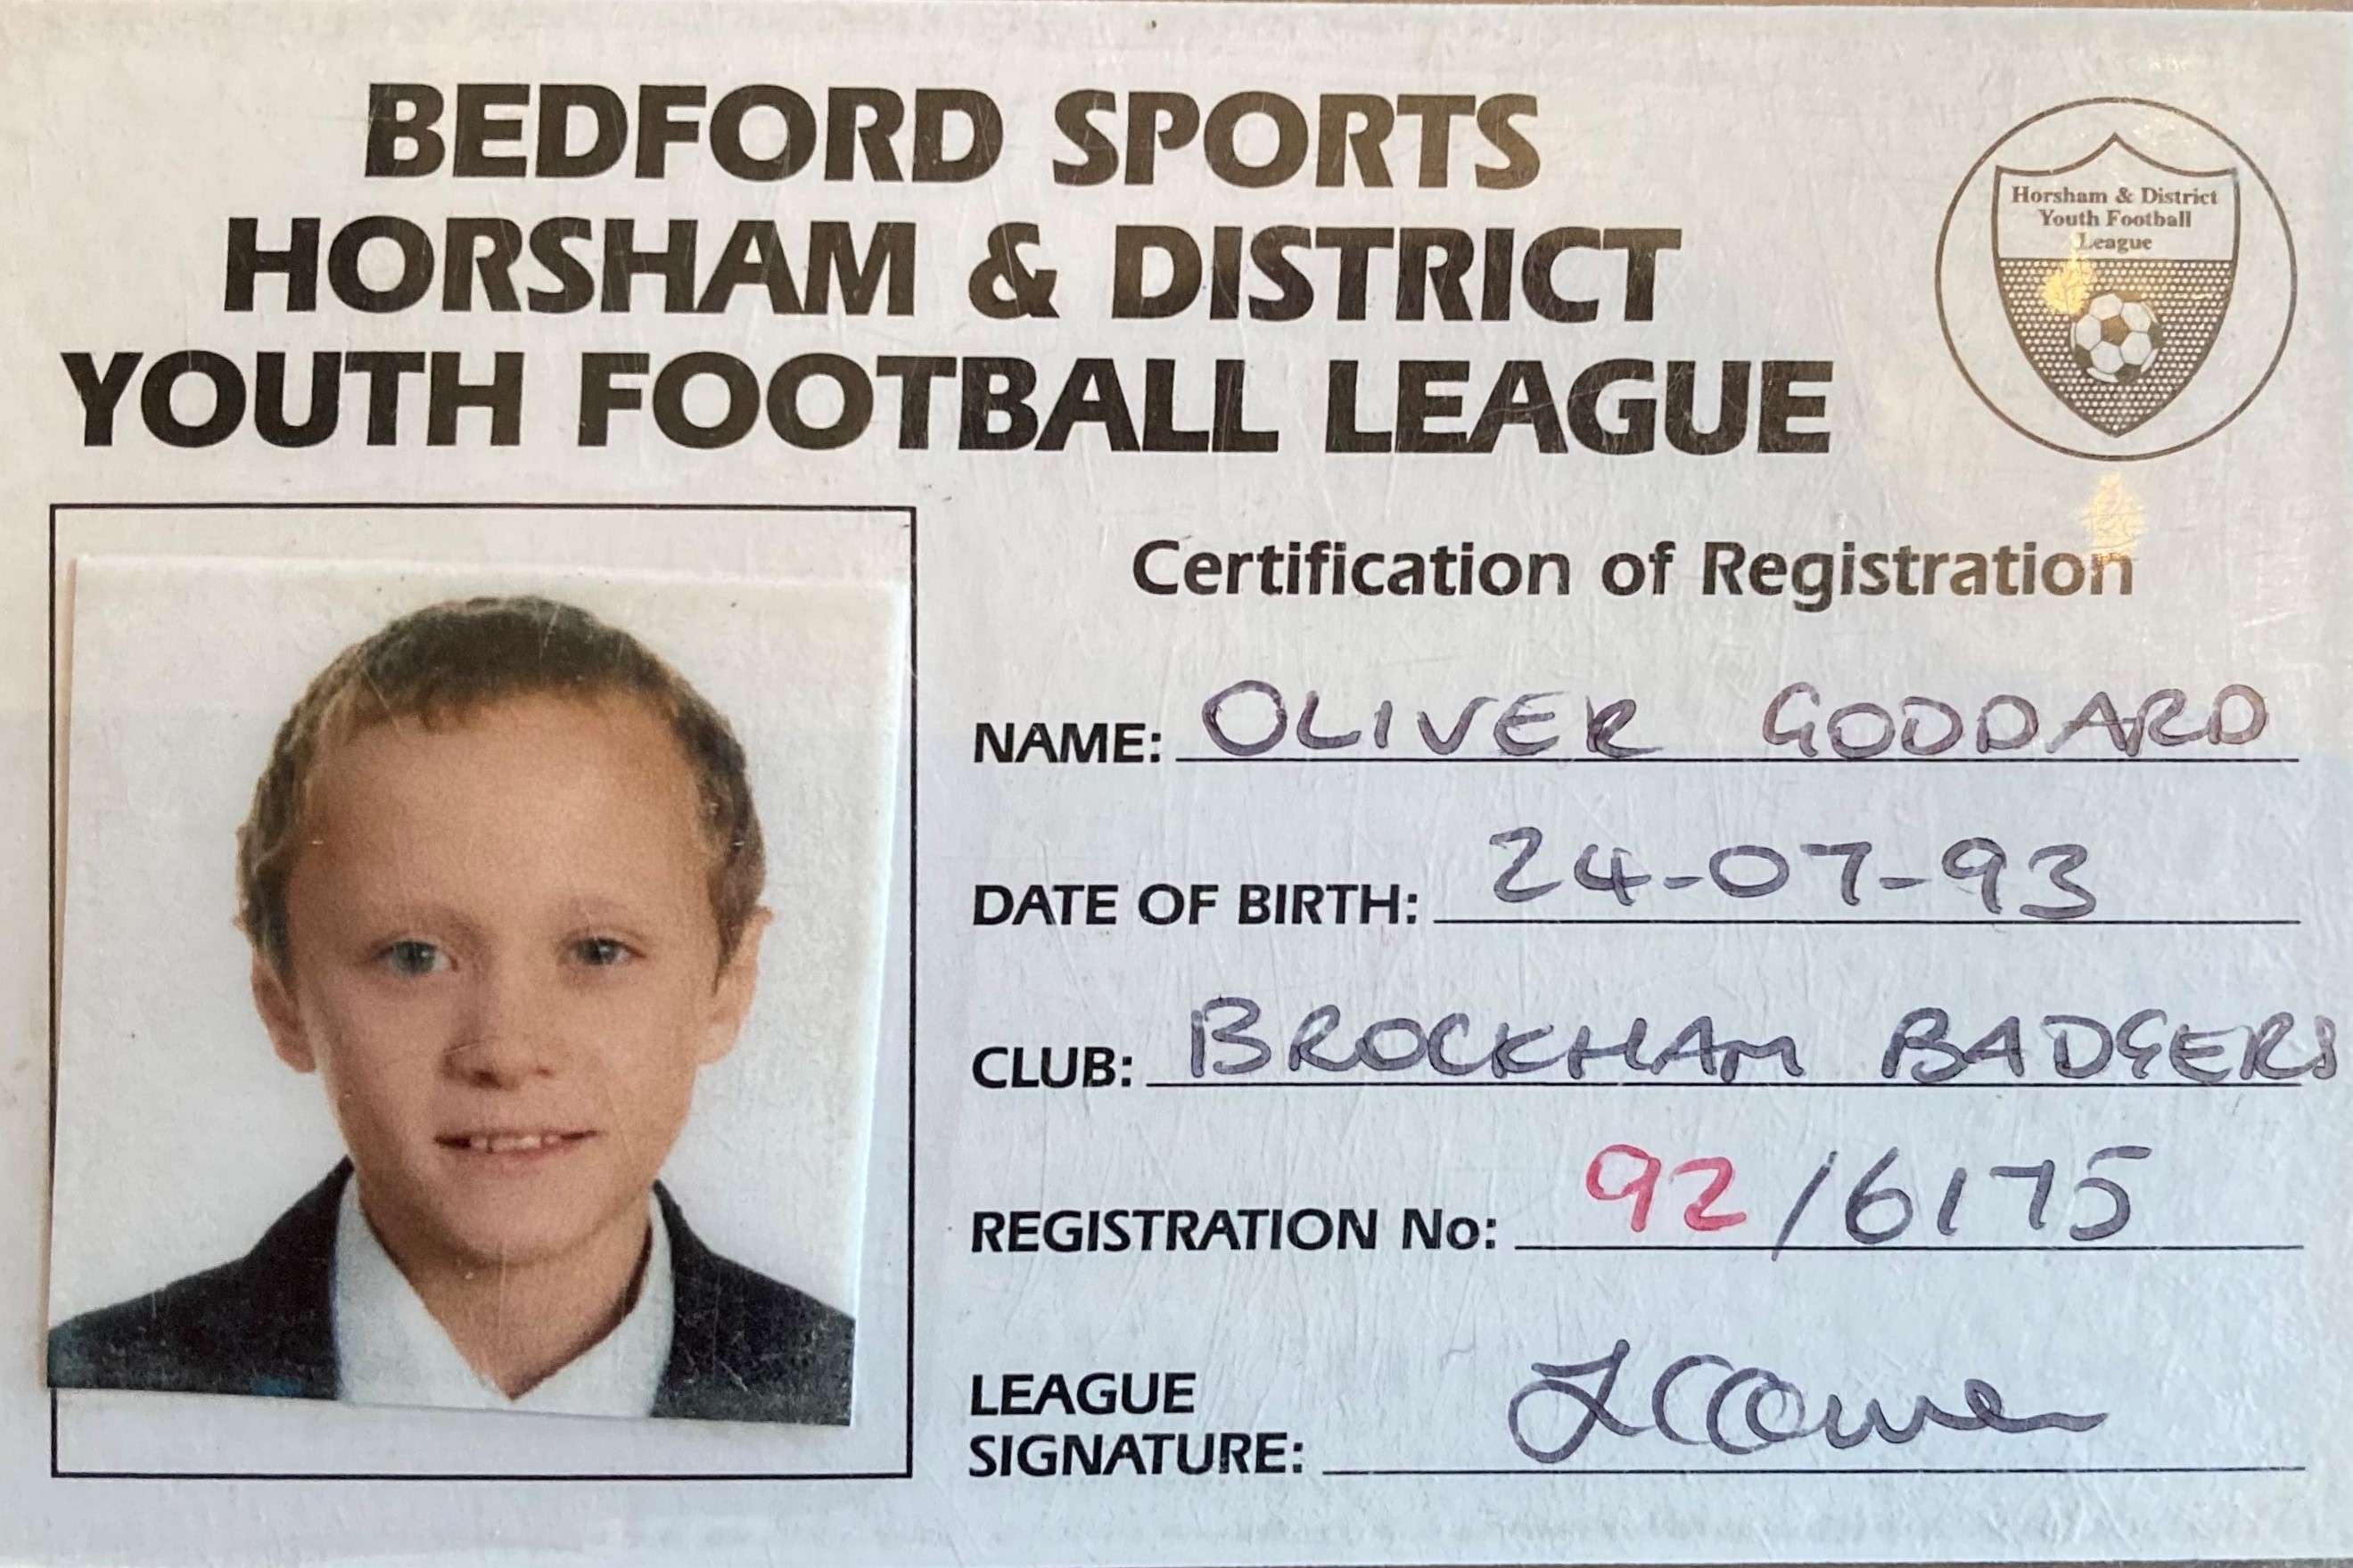 BEDFORD SPORTS
HORSHAM & DISTRICT
YOUTH FOOTBALL LEAGUE
Horsham & District
Youth Football
League
Certification of Registration
NAME: OLIVER GODDARD
DATE OF BIRTH: 24-07-93
CLUB: BROCKHAM BADGERS
REGISTRATION No: 92/6175
LEAGUE
SIGNATURE: